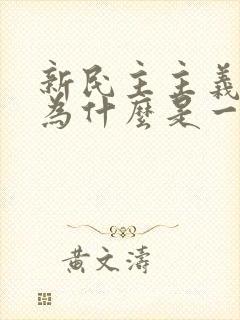 新民主主義
為什麼是一
黃文濤